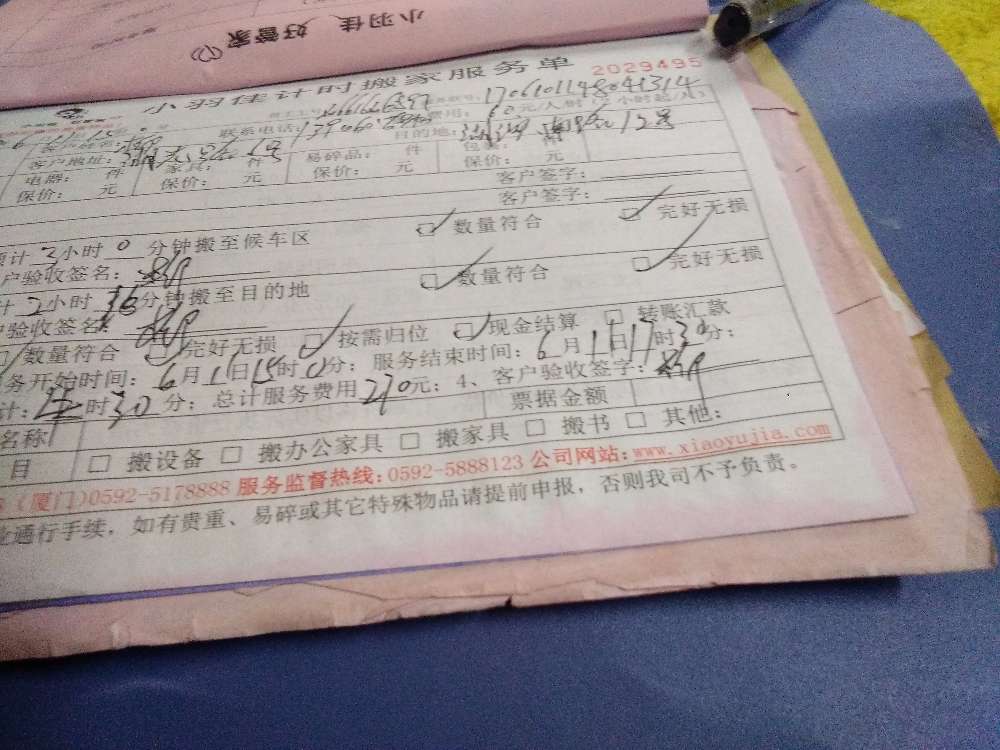 小羽佳 好管家
小羽佳计时搬家服务单 2029495
联系电话: 费用: 60元/人/时
客户地址: 1号 目的地: 12号
电器: 件 家具: 件 易碎品: 件 包装: 件
保价: 元 保价: 元 保价: 元 保价: 元 客户签字:
客户签字:
计2小时0分钟搬至候车区 ☑ 数量符合 ☑ 完好无损
户验收签名:
计2小时 分钟搬至目的地 ☑ 数量符合 ☑ 完好无损
验收签名:
☑ 数量符合 ☑ 完好无损 ☑ 按需归位 ☑ 现金结算 □ 转账汇款
务开始时间: 6月1日15时0分; 服务结束时间: 6月1日17时30分;
计: 2时30分; 总计服务费用270元; 4、客户验收签字:
名称 票据金额
目 □ 搬设备 □ 搬办公家具 □ 搬家具 □ 搬书 □ 其他:
(厦门)0592-5178888 服务监督热线:0592-5888123 公司网站:www.xiaoyujia.com
通行手续, 如有贵重、易碎或其它特殊物品请提前申报, 否则我司不予负责。